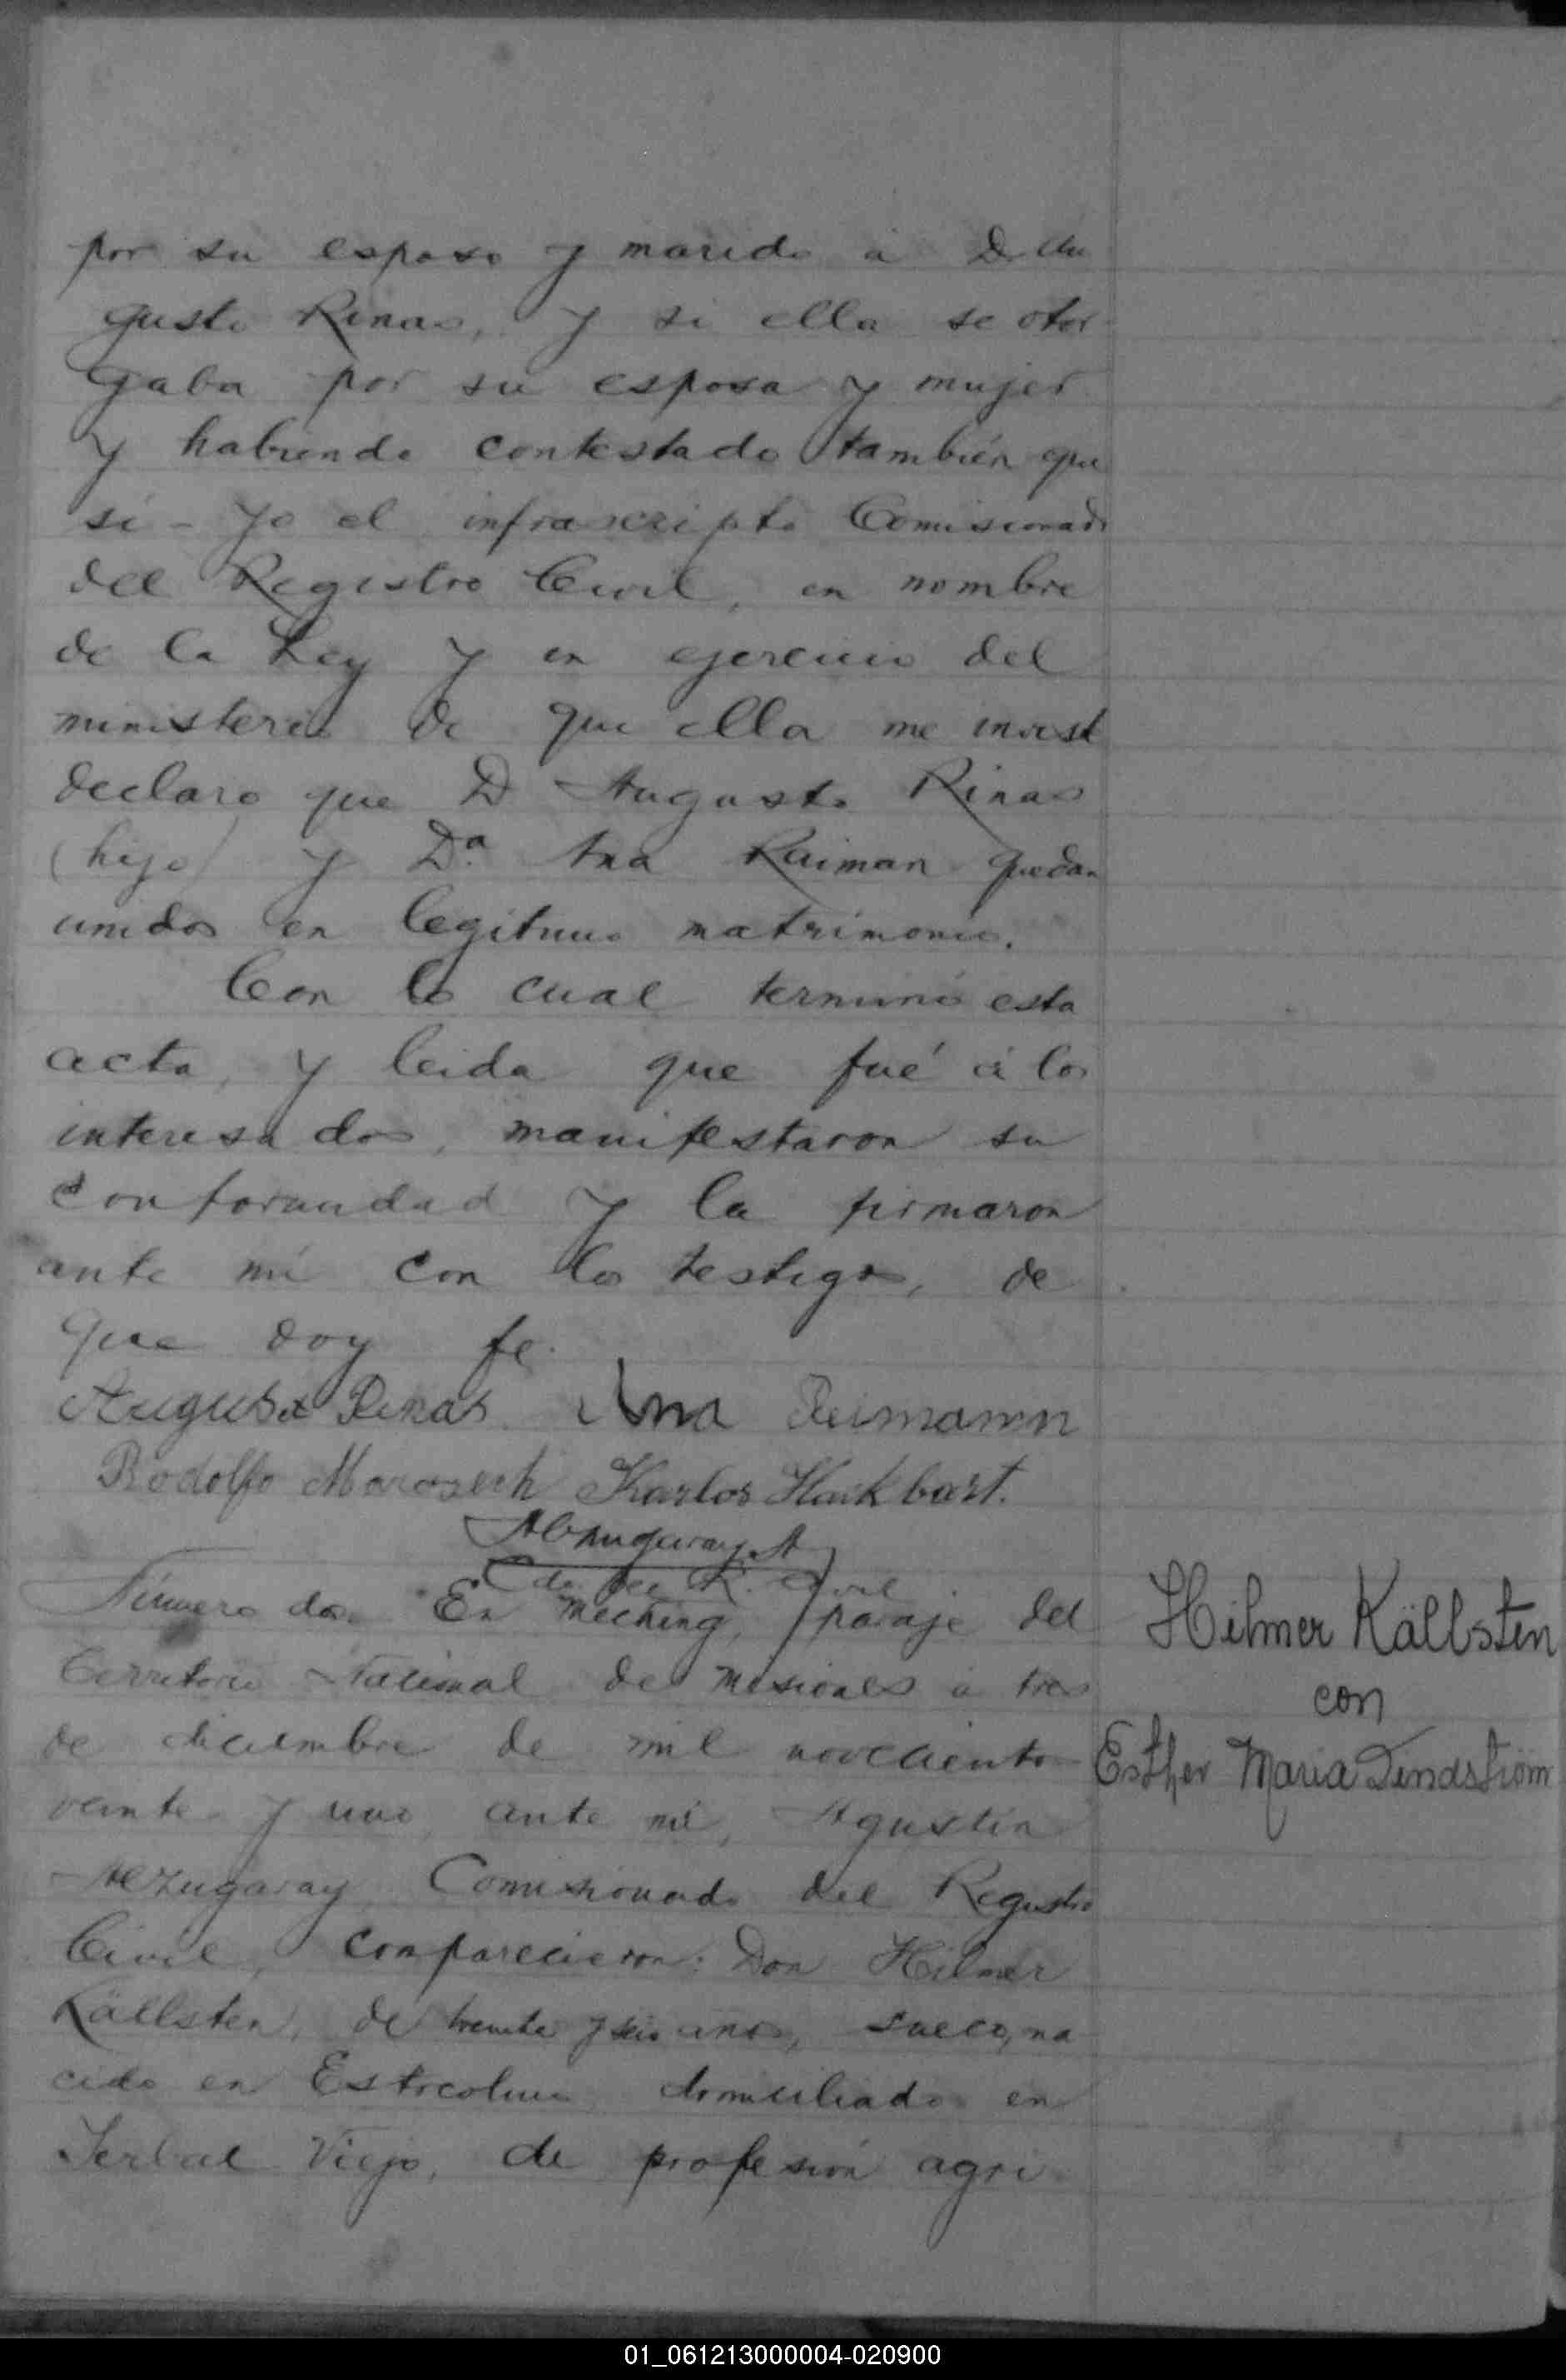 por su esposo y marido á D. Au
gusto Rinas, y si ella se otor
gaba por su esposa y mujer
y habiendo contestado también que
sí - Yo el infrascripto Comisionado
del Registro Civil, en nombre
de la Ley y en ejercicio del
ministerio de que ella me inviste
declaro que D Augusto Rinas
(hijo) y Dª Ana Raiman quedan
unidos en legítimo matrimonio.
Con lo cual terminó esta
acta, y leida que fué á los
interesados, manifestaron su
conformidad y la firmaron
ante mí con los testigos, de
que doy fe.
August Rinas Ana Reimann
Rodolfo Karlos Hackbart.
Cdo. del R. Civil
Número dos. En Meching, paraje del
Territorio Nacional de Misiones á tres
de diciembre de mil novecientos
veinte y uno, ante mí, Agustín
Alzugaray Comisionado del Registro
Civil, comparecieron: Don Hilmer
Källsten, de treinta y seis años, sueco, na
cido en Estocolmo domiciliado en
Yerbal Viejo, de profesión agri
Hilmer Källsten
con
Esther Maria Lindström
01_061213000004-020900